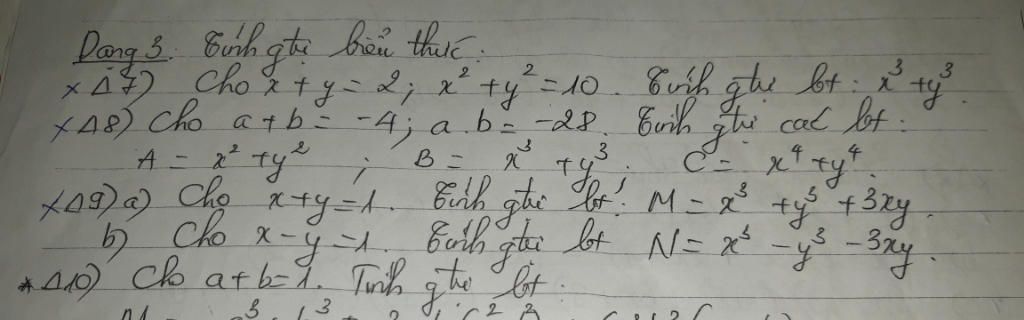 Dạng 3. Tính gtrị biểu thức:
x Δ7) Cho x + y = 2; x² + y² = 10. Tính gtrị bt: x³ + y³
x Δ8) Cho a + b = -4; a.b = -28. Tính gtrị các bt:
A = x² + y² ; B = x³ + y³. C = x⁴ + y⁴.
x Δ9) a) Cho x + y = 1. Tính gtrị bt: M = x³ + y³ + 3xy.
b) Cho x - y = 1. Tính gtrị bt N = x³ - y³ - 3xy.
* Δ10) Cho a + b = 1. Tính gtrị bt.